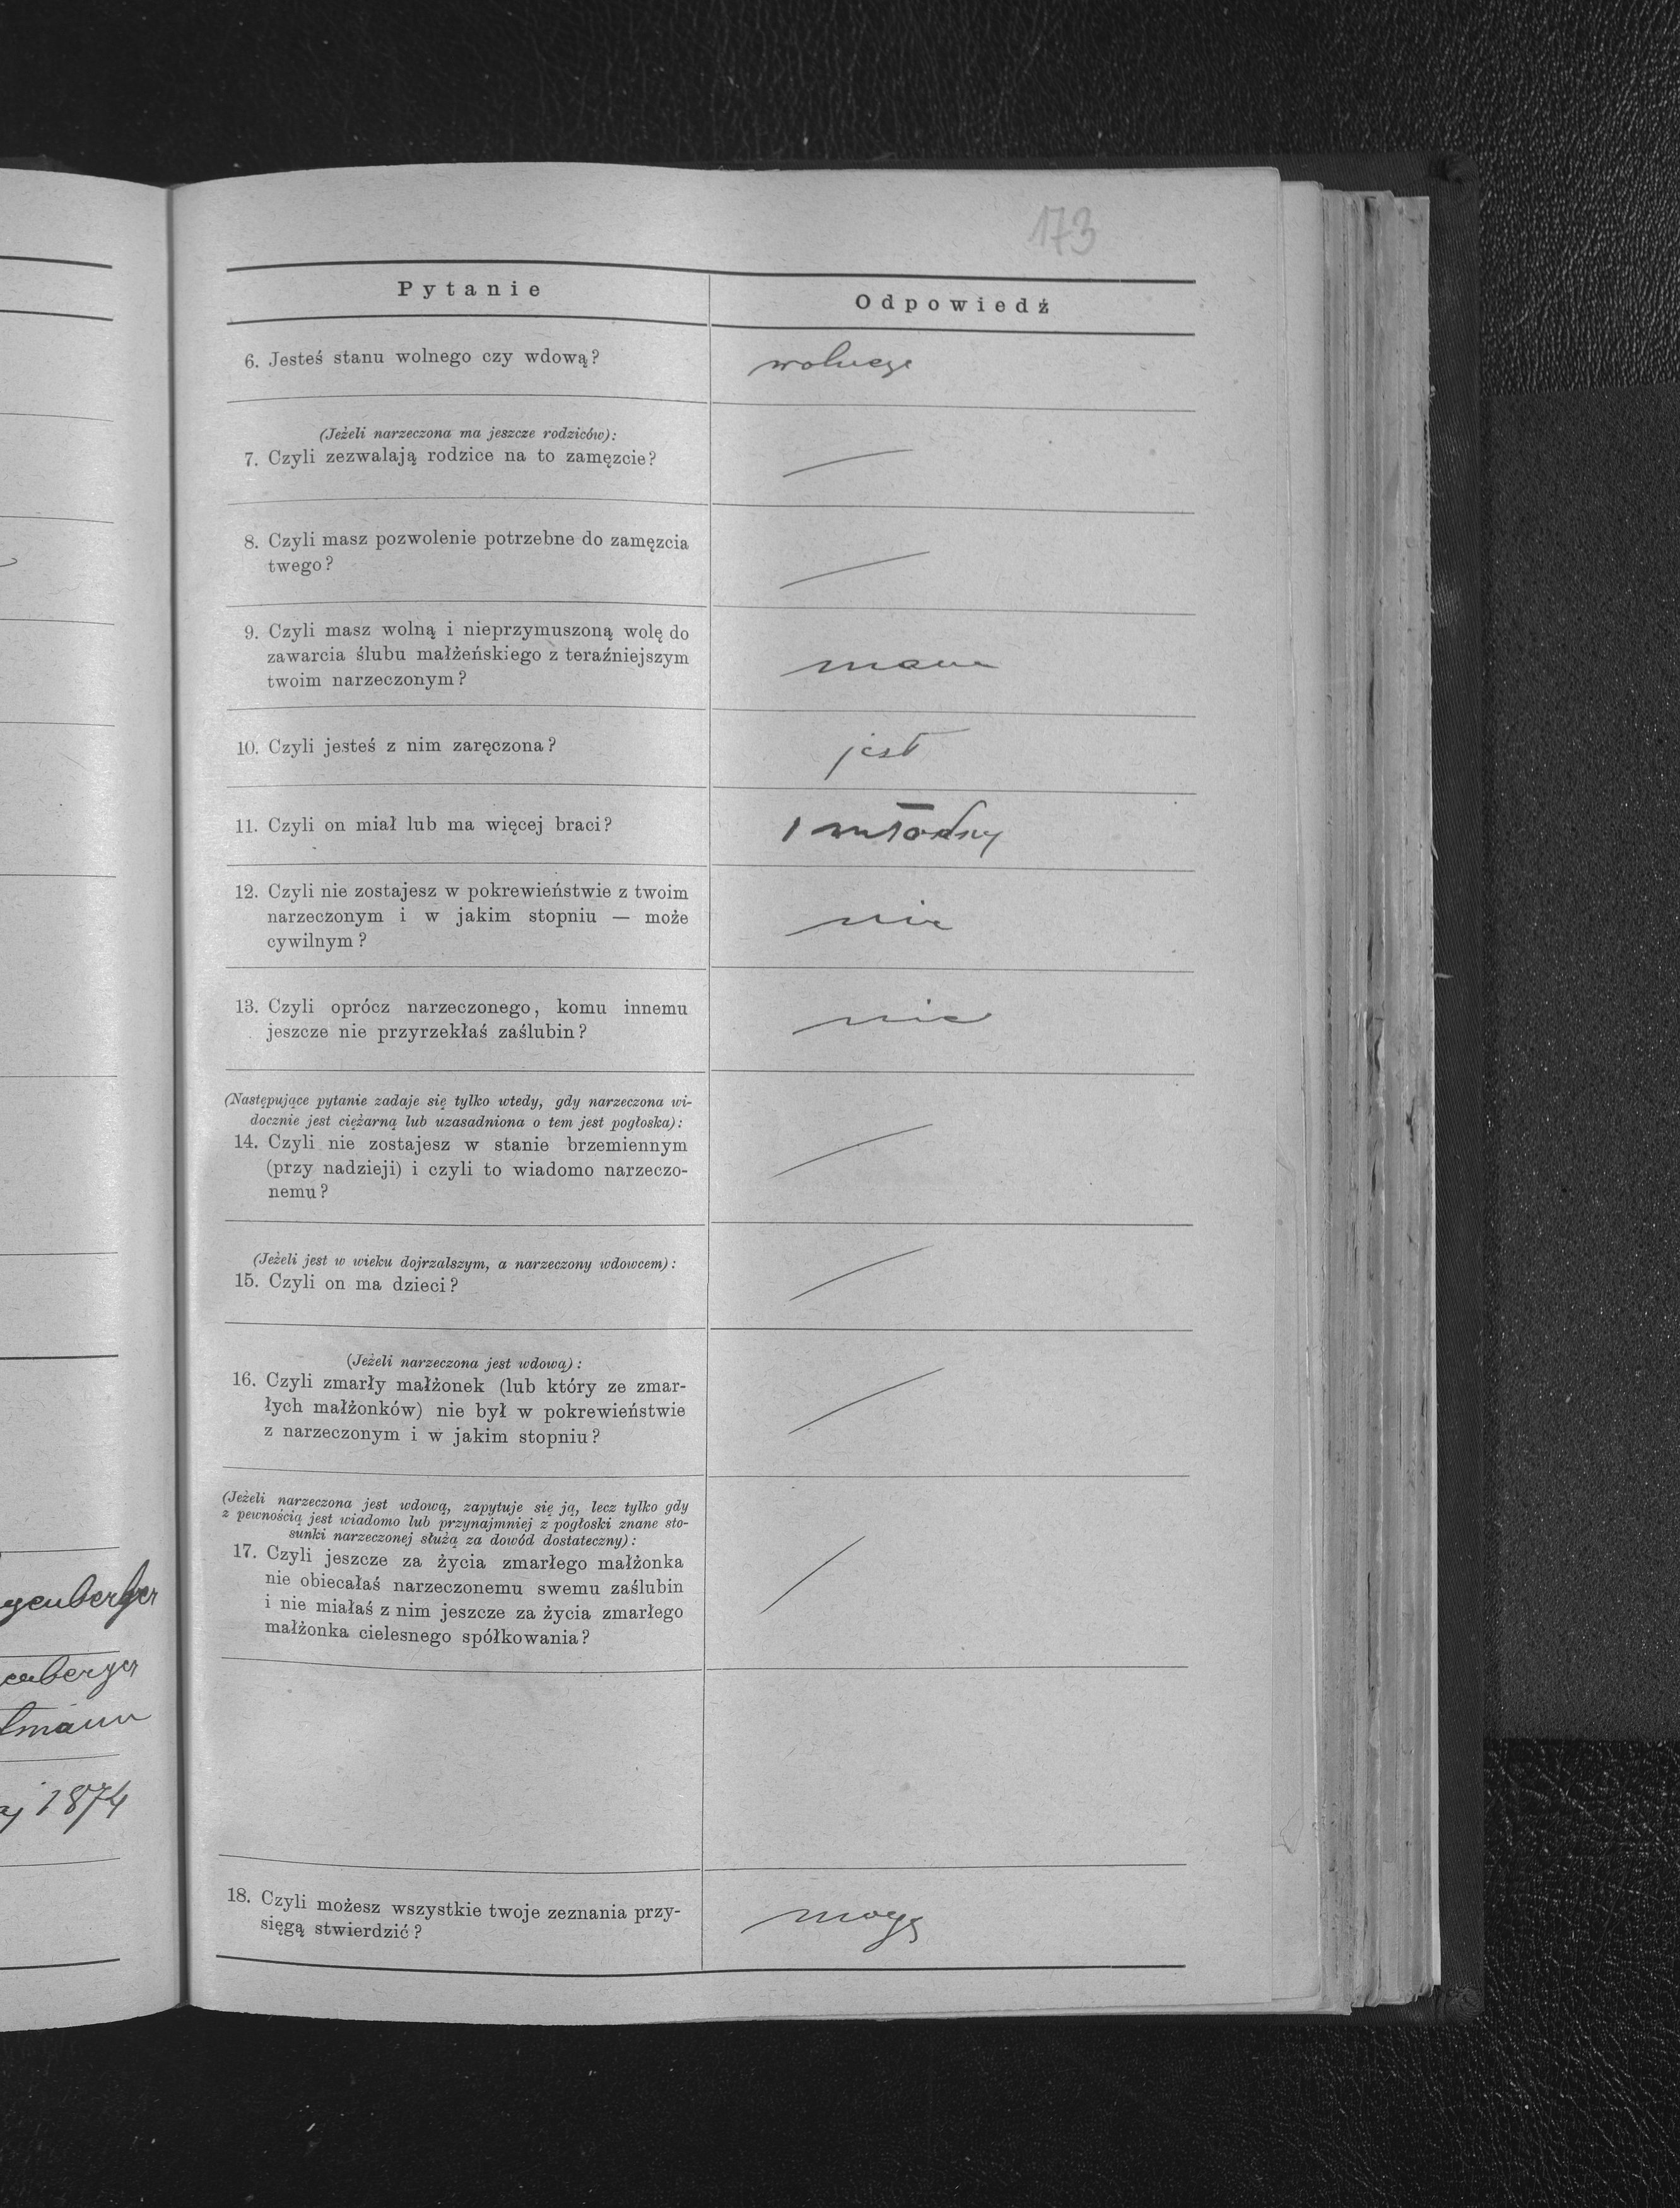 173
Pytanie
Odpowiedź
6. Jesteś stanu wolnego czy wdową?
(Jeżeli narzeczona ma jeszcze rodziców):
7. Czyli zezwalają rodzice na to zamęzcie?
8. Czyli masz pozwolenie potrzebne do zamęzcia
twego?
9. Czyli masz wolną i nieprzymuszoną wolę do
zawarcia ślubu małżeńskiego z teraźniejszym
twoim narzeczonym?
mam
10. Czyli jesteś z nim zaręczona?
jest
11. Czyli on miał lub ma więcej braci?
1
12. Czyli nie zostajesz w pokrewieństwie z twoim
narzeczonym i w jakim stopniu — może
cywilnym?
nie
13. Czyli oprócz narzeczonego, komu innemu
jeszcze nie przyrzekłaś zaślubin?
nie
(Następujące pytanie zadaje się tylko wtedy, gdy narzeczona wi-
docznie jest ciężarną lub uzasadniona o tem jest pogłoska):
14. Czyli nie zostajesz w stanie brzemiennym
(przy nadzieji) i czyli to wiadomo narzeczo-
nemu?
(Jeżeli jest w wieku dojrzalszym, a narzeczony wdowcem):
15. Czyli on ma dzieci?
(Jeżeli narzeczona jest wdową):
16. Czyli zmarły małżonek (lub który ze zmar-
łych małżonków) nie był w pokrewieństwie
z narzeczonym i w jakim stopniu?
(Jeżeli narzeczona jest wdową, zapytuje się ją, lecz tylko gdy
z pewnością jest wiadomo lub przynajmniej z pogłoski znane sto-
sunki narzeczonej służą za dowód dostateczny):
17. Czyli jeszcze za życia zmarłego małżonka
nie obiecałaś narzeczonemu swemu zaślubin
i nie miałaś z nim jeszcze za życia zmarłego
małżonka cielesnego spółkowania?
18. Czyli możesz wszystkie twoje zeznania przy-
sięgą stwierdzić?
mogę
1874